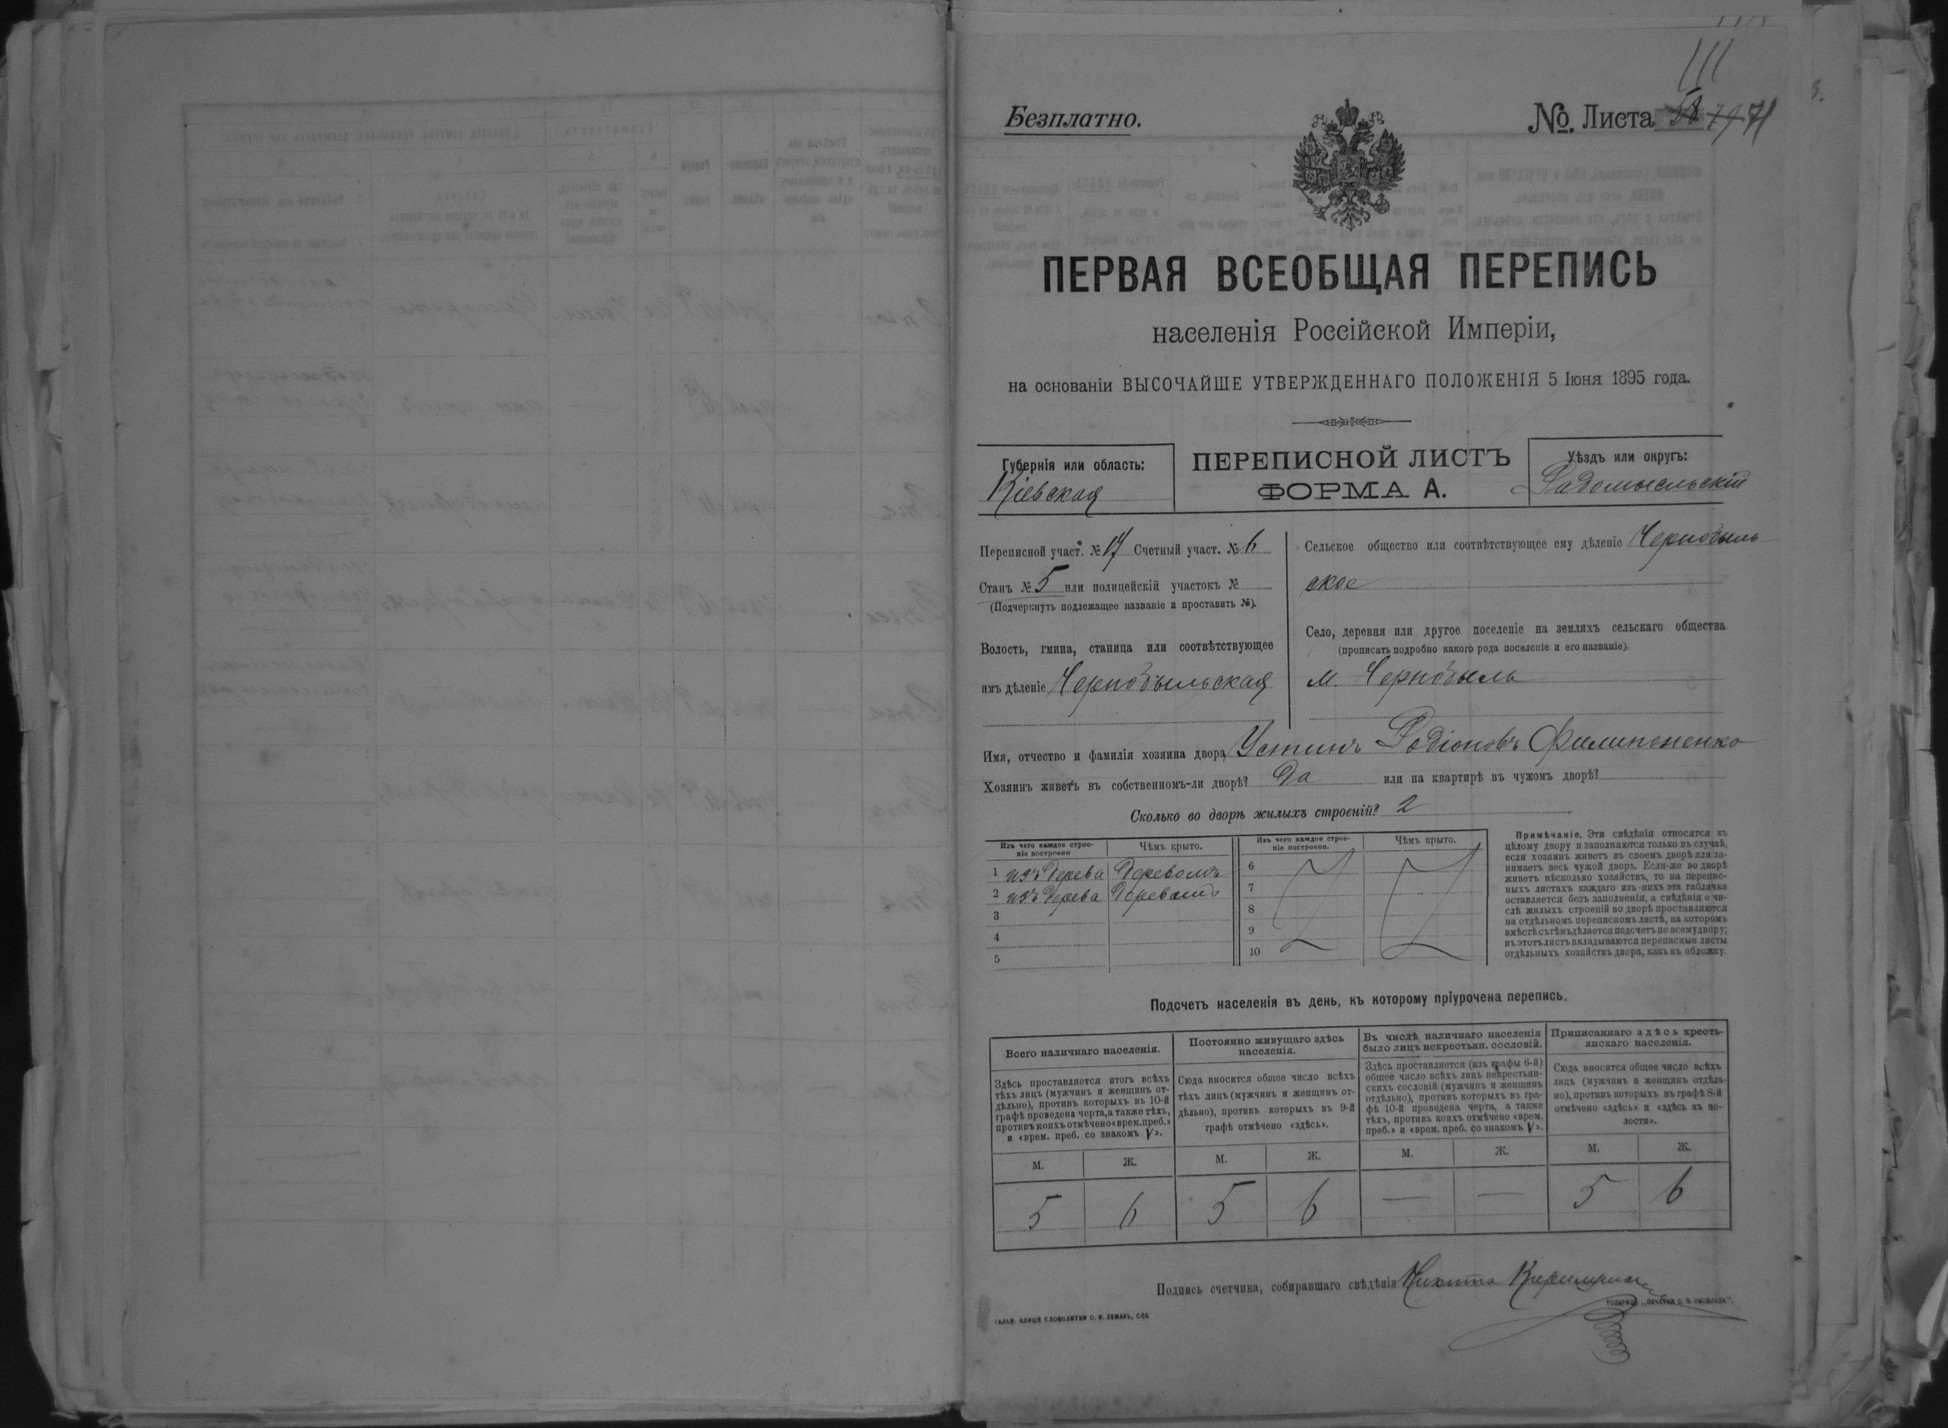 111
Безплатно.
№. Листа 58 79 71
ПЕРВАЯ ВСЕОБЩАЯ ПЕРЕПИСЬ
населенія Россійской Имперіи,
на основаніи ВЫСОЧАЙШЕ УТВЕРЖДЕННАГО ПОЛОЖЕНІЯ 5 Іюня 1895 года.
Губернія или область:
Кіевская
ПЕРЕПИСНОЙ ЛИСТЪ
ФОРМА А.
Уѣздъ или округъ:
Радомысльскій
Переписной участ. № 17 Счетный участ. № 6
Станъ № 5 или полицейскій участокъ №
(Подчеркнуть подлежащее названіе и проставить №).
Волость, гмина, станица или соотвѣтствующее
имъ дѣленіе Чернобыльская
Сельское общество или соотвѣтствующее ему дѣленіе Чернобыль
ское
Село, деревня или другое поселеніе на земляхъ сельскаго общества
(прописать подробно какого рода поселеніе и его названіе).
м. Чернобыль
Имя, отчество и фамилія хозяина двора, Устинъ Родіоновъ Филипоненко
Хозяинъ живетъ въ собственномъ-ли дворѣ? Да или на квартирѣ въ чужомъ дворѣ?
Сколько во дворѣ жилыхъ строеній? 2
Изъ чего каждое строе-
ніе построено
Чѣмъ крыто.
1 изъ Дерева Деревомъ
2 изъ Дерева Деревомъ
3
4
5
Изъ чего каждое строе-
ніе построено.
Чѣмъ крыто.
6
7
8
9
10
Примѣчаніе. Эти свѣдѣнія относятся къ
цѣлому двору и заполняются только въ случаѣ,
если хозяинъ живетъ въ своемъ дворѣ или за-
нимаетъ весь чужой дворъ. Если-же во дворѣ
живетъ нѣсколько хозяйствъ, то на перепис-
ныхъ листахъ каждаго изъ нихъ эта табличка
оставляется безъ заполненія, а свѣдѣнія о чи-
слѣ жилыхъ строеній во дворѣ проставляются
на отдѣльномъ переписномъ листѣ, на которомъ
вмѣстѣ съ тѣмъ дѣлается подсчетъ по всему двору;
въ этотъ листъ вкладываются переписные листы
отдѣльныхъ хозяйствъ двора, какъ въ обложку.
Подсчетъ населенія въ день, къ которому пріурочена перепись.
Всего наличнаго населенія.
Здѣсь проставляется итогъ всѣхъ
тѣхъ лицъ (мужчинъ и женщинъ от-
дѣльно), противъ которыхъ въ 10-й
графѣ проведена черта, а также тѣхъ,
противъ коихъ отмѣчено «врем. преб.»
и «врем. преб. со знакомъ V».
М. Ж.
5 6
Постоянно живущаго здѣсь
населенія.
Сюда вносится общее число всѣхъ
тѣхъ лицъ (мужчинъ и женщинъ от-
дѣльно), противъ которыхъ въ 9-й
графѣ отмѣчено «здѣсь».
М. Ж.
5 6
Въ числѣ наличнаго населенія
было лицъ некрестьян. сословій.
Здѣсь проставляется (изъ графы 6-й)
общее число всѣхъ лицъ некрестьян-
скихъ сословій (мужчинъ и женщинъ
отдѣльно), противъ которыхъ въ гра-
фѣ 10-й проведена черта, а также
тѣхъ, противъ коихъ отмѣчено «врем.
преб.» и «врем. преб. со знакомъ V».
М. Ж.
— —
Приписаннаго здѣсь кресть-
янскаго населенія.
Сюда вносится общее число всѣхъ
лицъ (мужчинъ и женщинъ отдѣль-
но), противъ которыхъ въ графѣ 8-й
отмѣчено «здѣсь» и «здѣсь къ во-
лости».
М. Ж.
5 6
Подпись счетчика, собиравшаго свѣдѣнія Никита
ГАЛЬВ. КЛИШЕ СЛОВОЛИТНИ О. И. ЛЕМАНЪ, СПБ